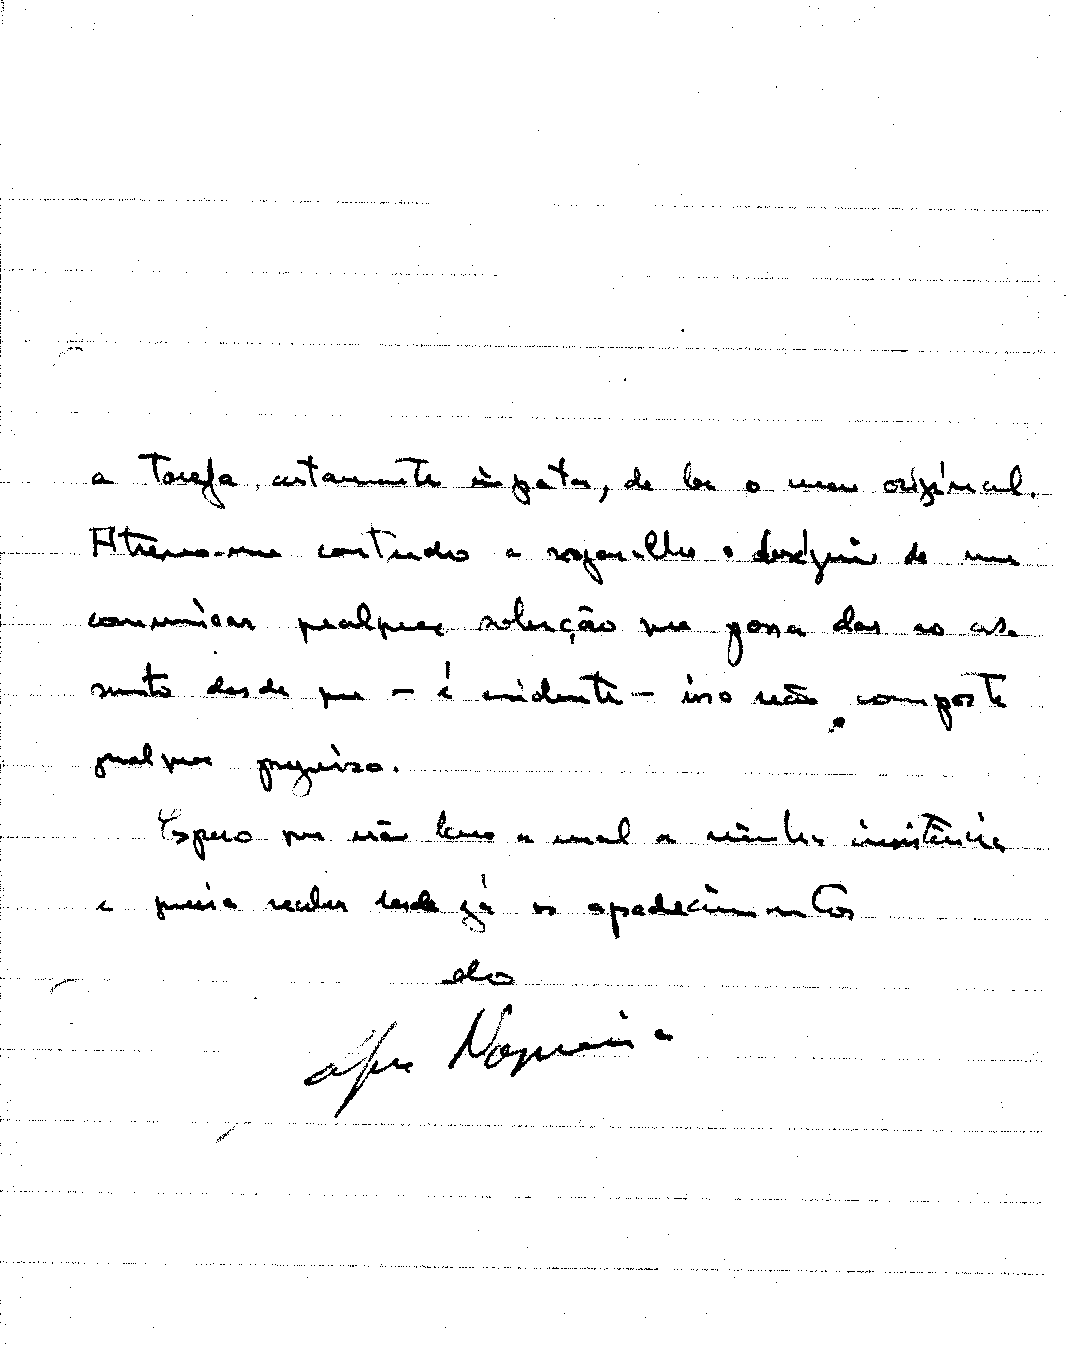 a tarefa, certamente ingrata, de ler o meu original.
Atrevo-me contudo a rogar-lhe o obséquio de me
comunicar qualquer solução que possa dar ao as-
sunto desde que — é evidente — isso não comporte
qualquer prejuízo.
Espero que não leve a mal a minha insistência
e queira receber desde já os agradecimentos
do
Nogueira